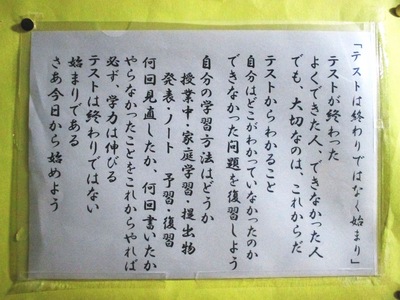 「テストは終わりではなく始まり」
テストが終わった
よくできた人、できなかった人
でも、大切なのは、これからだ
テストからわかること
自分はどこがわかっていなかったのか
できなかった問題を復習しよう
自分の学習方法はどうか
授業中・家庭学習・提出物
発表・ノート 予習・復習
何回見直したか、何回書いたか
やらなかったことをこれからやれば
必ず、学力は伸びる
テストは終わりではない
始まりである
さあ今日から始めよう